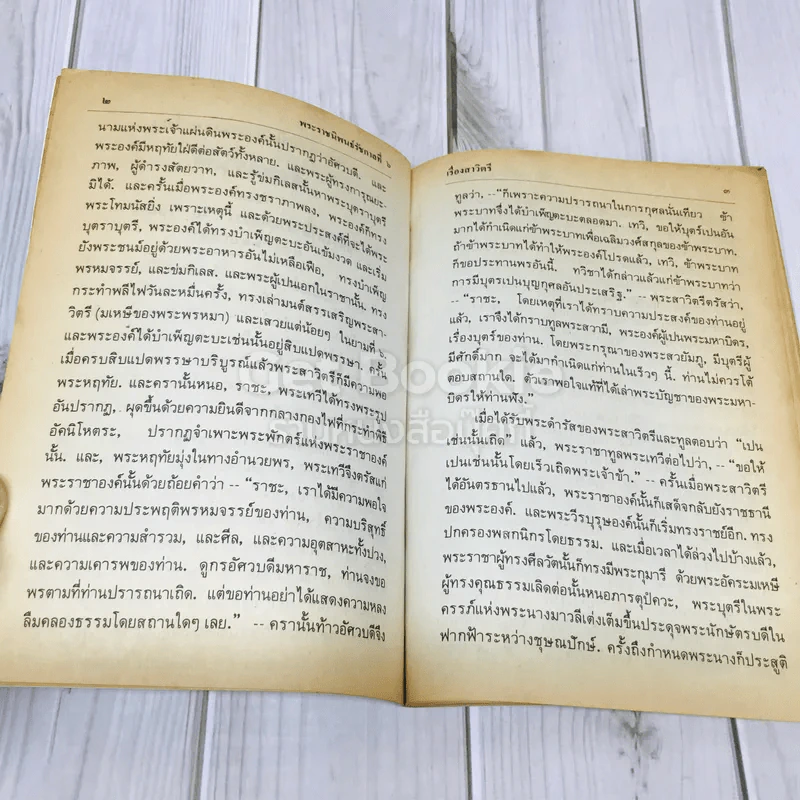 ๒
พระราชนิพนธ์รัชกาลที่ ๖
นามแห่งพระเจ้าแผ่นดินพระองค์นั้นปรากฏว่าอัศวบดี. และ
พระองค์มีหฤทัยใฝ่ดีต่อสัตว์ทั้งหลาย. และพระผู้ทรงการุณยะ-
ภาพ, ผู้ดำรงสัตยวาท, และรู้ข่มกิเลสนั้นหาพระบุตราบุตรี
มิได้. และครั้นเมื่อพระองค์ทรงชราภาพลง, พระองค์ก็ทรง
พระโทมนัสยิ่ง เพราะเหตุนี้ และด้วยพระประสงค์ที่จะได้พระ
บุตราบุตรี, พระองค์ได้ทรงบำเพ็ญตะบะอันเข้มงวด และเริ่ม
ยังพระชนม์อยู่ด้วยพระอาหารอันไม่เหลือเฟือ, ทรงบำเพ็ญ
พรหมจรรย์, และข่มกิเลส. และพระผู้เป็นเอกในราชานั้น, ทรง
กระทำพลีไฟวันละหมื่นครั้ง, ทรงเล่ามนต์สรรเสริญพระสา-
วิตรี (มเหษีของพระพรหมา) และเสวยแต่น้อยๆ ในยามที่ ๖.
และพระองค์ได้บำเพ็ญตะบะเช่นนั้นอยู่สิบแปดพรรษา. ครั้น
เมื่อครบสิบแปดพรรษาบริบูรณ์แล้วพระสาวิตรีก็มีความพอ
พระหฤทัย. และครานั้นหนอ, ราชะ, พระเทวีได้ทรงพระรูป
อันปรากฏ, ผุดขึ้นด้วยความยินดีจากกลางกองไฟที่กระทำพิธี
อัคนิโหตระ, ปรากฏจำเพาะพระพักตร์แห่งพระราชาองค์
นั้น. และ, พระหฤทัยมุ่งในทางอำนวยพร, พระเทวีจึงตรัสแก่
พระราชาองค์นั้นด้วยถ้อยคำว่า -- “ราชะ, เราได้มีความพอใจ
มากด้วยความประพฤติพรหมจรรย์ของท่าน, ความบริสุทธิ์
ของท่านและความสำรวม, และศีล, และความอุตสาหะทั้งปวง,
และความเคารพของท่าน. ดูกรอัศวบดีมหาราช, ท่านจงขอ
พรตามที่ท่านปรารถนาเถิด. แต่ขอท่านอย่าได้แสดงความหลง
ลืมคลองธรรมโดยสถานใดๆ เลย.” -- ครานั้นท้าวอัศวบดีจึง
เรื่องสาวิตรี
๓
ทูลว่า, --“ก็เพราะความปรารถนาในการกุศลนั้นเทียว ข้า
พระบาทจึงได้บำเพ็ญตะบะตลอดมา. เทวี, ขอให้บุตร์เปนอัน
มากได้กำเนิดแก่ข้าพระบาทเพื่อเฉลิมวงศ์สกุลของข้าพระบาท.
ถ้าข้าพระบาทได้ทำให้พระองค์โปรดแล้ว, เทวี, ข้าพระบาท
ก็ขอประทานพรอันนี้. ทวิชาได้กล่าวแล้วแก่ข้าพระบาทว่า
การมีบุตรเปนบุญกุศลอันประเสริฐ.” -- พระสาวิตรีตรัสว่า,
-- “ราชะ, โดยเหตุที่เราได้ทราบความประสงค์ของท่านอยู่
แล้ว, เราจึงได้กราบทูลพระสวามี, พระองค์ผู้เปนพระมหาบิดร,
เรื่องบุตร์ของท่าน. โดยพระกรุณาของพระสวยัมภู, มีบุตรีผู้
มีศักดิ์มาก จะได้มากำเนิดแก่ท่านในเร็วๆ นี้. ท่านไม่ควรโต้
ตอบสถานใด. ตัวเราพอใจแท้ที่ได้เล่าพระบัญชาของพระมหา-
บิดรให้ท่านฟัง.”
เมื่อได้รับพระดำรัสของพระสาวิตรีและทูลตอบว่า “เปน
เช่นนั้นเถิด” แล้ว, พระราชาทูลพระเทวีต่อไปว่า, -- “ขอให้
เปนเช่นนั้นโดยเร็วเถิดพระเจ้าข้า.” -- ครั้นเมื่อพระสาวิตรี
ได้อันตรธานไปแล้ว, พระราชาองค์นั้นก็เสด็จกลับยังราชธานี
ของพระองค์. และพระวีรบุรุษองค์นั้นก็เริ่มทรงราชย์อีก. ทรง
ปกครองพสกนิกรโดยธรรม. และเมื่อเวลาได้ล่วงไปบ้างแล้ว,
พระราชาผู้ทรงศีลวัตนั้นก็ทรงมีพระกุมารี ด้วยพระอัครมเหษี
ผู้ทรงคุณธรรมเลิดต่อนั้นหนอภารตุปัควะ, พระบุตรีในพระ
ครรภ์แห่งพระนางมาวลีเต่งเต็มขึ้นประดุจพระนักษัตรบดีใน
ฟากฟ้าระหว่างชุษณปักษ์. ครั้งถึงกำหนดพระนางก็ประสูติ